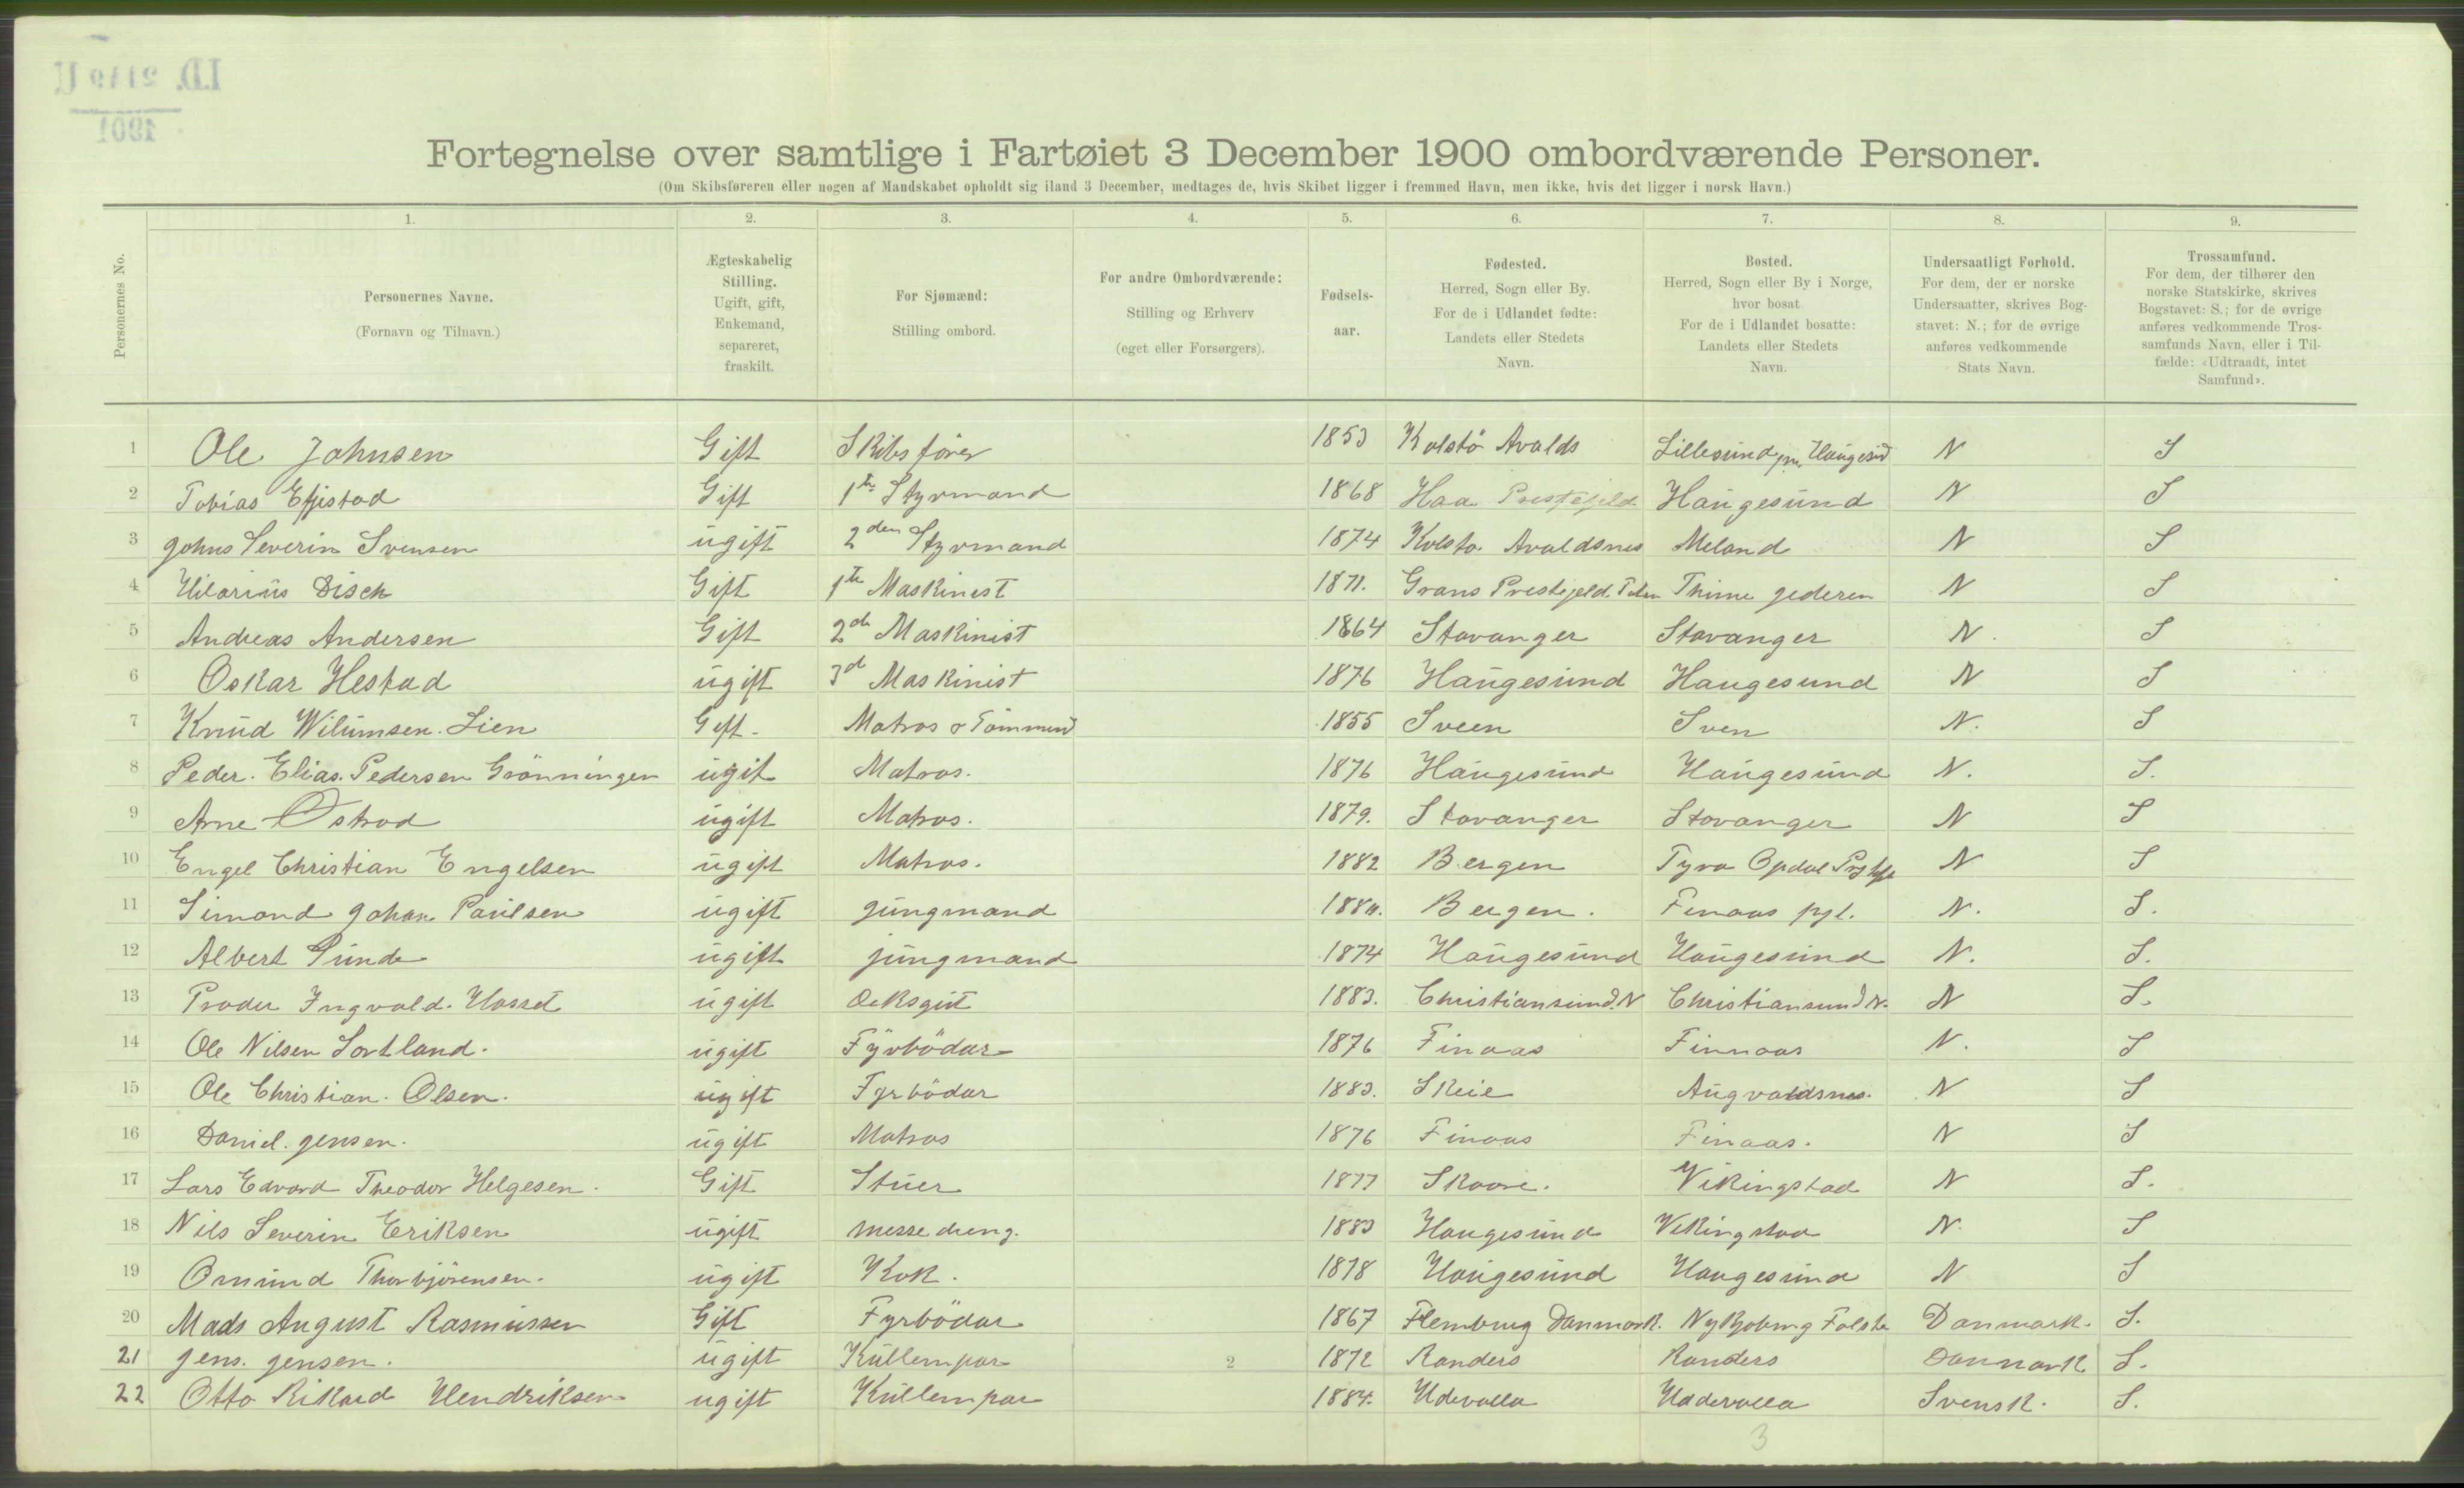 I.D. 2149 U
1901
Fortegnelse over samtlige i Fartøiet 3 December 1900 ombordværende Personer.
(Om Skibsføreren eller nogen af Mandskabet opholdt sig iland 3 December, medtages de, hvis Skibet ligger i fremmed Havn, men ikke, hvis det ligger i norsk Havn.)
Personernes No.
1. 2. 3. 4. 5. 6. 7. 8. 9.
Personernes Navne.
(Fornavn og Tilnavn.)
Ægteskabelig
Stilling.
Ugift, gift,
Enkemand,
separeret,
fraskilt.
For Sjømænd:
Stilling ombord.
For andre Ombordværende:
Stilling og Erhverv
(eget eller Forsørgers).
Fødsels-
aar.
Fødested.
Herred, Sogn eller By.
For de i Udlandet fødte:
Landets eller Stedets
Navn.
Bosted.
Herred, Sogn eller By i Norge,
hvor bosat.
For de i Udlandet bosatte:
Landets eller Stedets
Navn.
Undersaatligt Forhold.
For dem, der er norske
Undersaatter, skrives Bog-
stavet: N.; for de øvrige
anføres vedkommende
Stats Navn.
Trossamfund.
For dem, der tilhører den
norske Statskirke, skrives
Bogstavet: S.; for de øvrige
anføres vedkommende Tros-
samfunds Navn, eller i Til-
fælde: «Udtraadt, intet
Samfund».
1 Ole Johnsen Gift Skibsfører 1853 Kolstö Avalds Lillesund N S
2 Tobias Gift 1te Styrmand 1868 Haa Prestegjeld Haugesund N S
3 Johns Severin Svensen ugift 2den Styrmand 1874 Kolstø Avaldsnes Meland N S
4 Hilarius Disch Gift 1te Maskinest 1871. Grans Prestejeld Thime Jederen N S
5 Andreas Andersen Gift 2de Maskinist 1864 Stavanger Stavanger N. S
6 Oskar Hestad ugift 3d Maskinist 1876 Haugesund Haugesund N S
7 Knud Wilumsen. Lien Gift. Matros & Tömmerd 1855 Sveen Sven N. S
8 Peder. Elias. Pedersen Grönningen ugit Matros. 1876 Haugesund Haugesund N. S.
9 Arne Østrod ugift Matros. 1879. Stavanger Stavanger N S
10 Engel Christian Engelsen ugift Matros. 1882 Bergen Opdal N S
11 Simond Johan Paulsen ugift Jungmand Bergen. Finaas pgl. N. S.
12 Albert Sunde ugift jungmand 1874 Haugesund Haugesund N. S.
13 Ingvald. Hasset ugift 1883. Christiansund. N Christiansund N. N S.
14 Ole Nilsen Sortland. ugift Fyrbödar 1876 Finaas Finnaas N. S
15 Ole Christian. Olsen. ugift Fyrbödar 1883. Skeie Augvaldsnes. N S
16 Daniel. Jensen. ugift Matros 1876 Finaas Finaas. N S
17 Lars Edvard Theodor Helgesen. Gift Stuer 1877 Skaare. Vikingstad N S.
18 Nils Severin Eriksen ugift messedreng. 1883 Haugesund Vekingstad N. S
19 Omund Thorbjörensen. ugift Kok. 1878 Haugesund Haugesund N S
20 Mads August Rasmussen Gift Fyrbödar 1867 Flemburg Danmark. Nykjobing Falste Danmark. S.
21 Jens. Jensen. ugift Kullempar 2 1872 Randers Randers Danmark S.
22 Otto Rikard Hendriksen ugift Kullempar 1884. Udevalla Uddevalla Svensk. S.
3